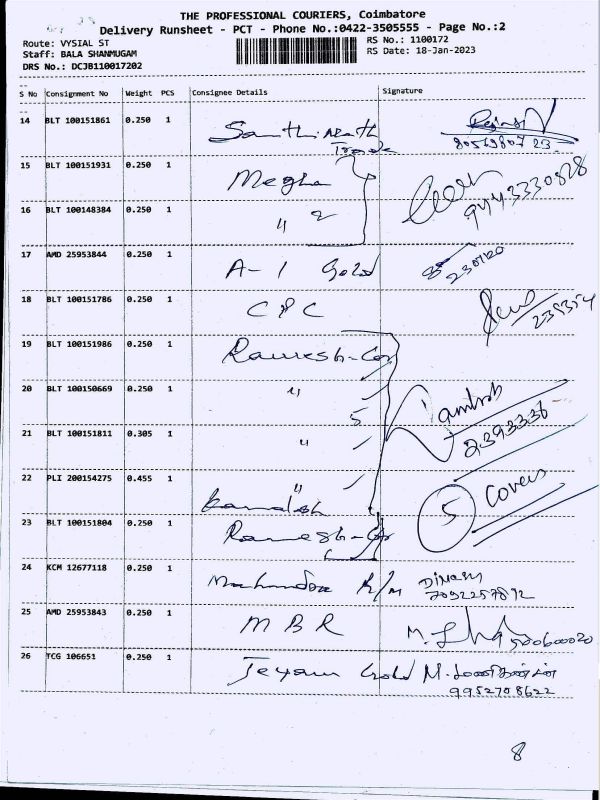 THE PROFESSIONAL COURIERS, Coimbatore
Delivery Runsheet - PCT - Phone No.:0422-3505555 - Page No.:2
Route: VYSIAL ST
Staff: BALA SHANMUGAM
DRS No.: DCJB110017202
RS No.: 1100172
RS Date: 18-Jan-2023
S No Consignment No Weight PCS Consignee Details Signature
14 BLT 100151861 0.250 1
15 BLT 100151931 0.250 1 Megha
16 BLT 100148384 0.250 1 " 2 9443330828
17 AMD 25953844 0.250 1 A-1 Gold 230120
18 BLT 100151786 0.250 1 CPC
19 BLT 100151986 0.250 1 Ramesh-Co
20 BLT 100150669 0.250 1 "
5
21 BLT 100151811 0.305 1 " 2393336
22 PLI 200154275 0.455 1 "
Kamalesh 5 Covers
23 BLT 100151804 0.250 1 Ramesh-Co
24 KCM 12677118 0.250 1 Mahendra R/M Dinesh
7092257892
25 AMD 25953843 0.250 1 MBR
26 TCG 106651 0.250 1 Jeyam Gold M.
9952708622
8